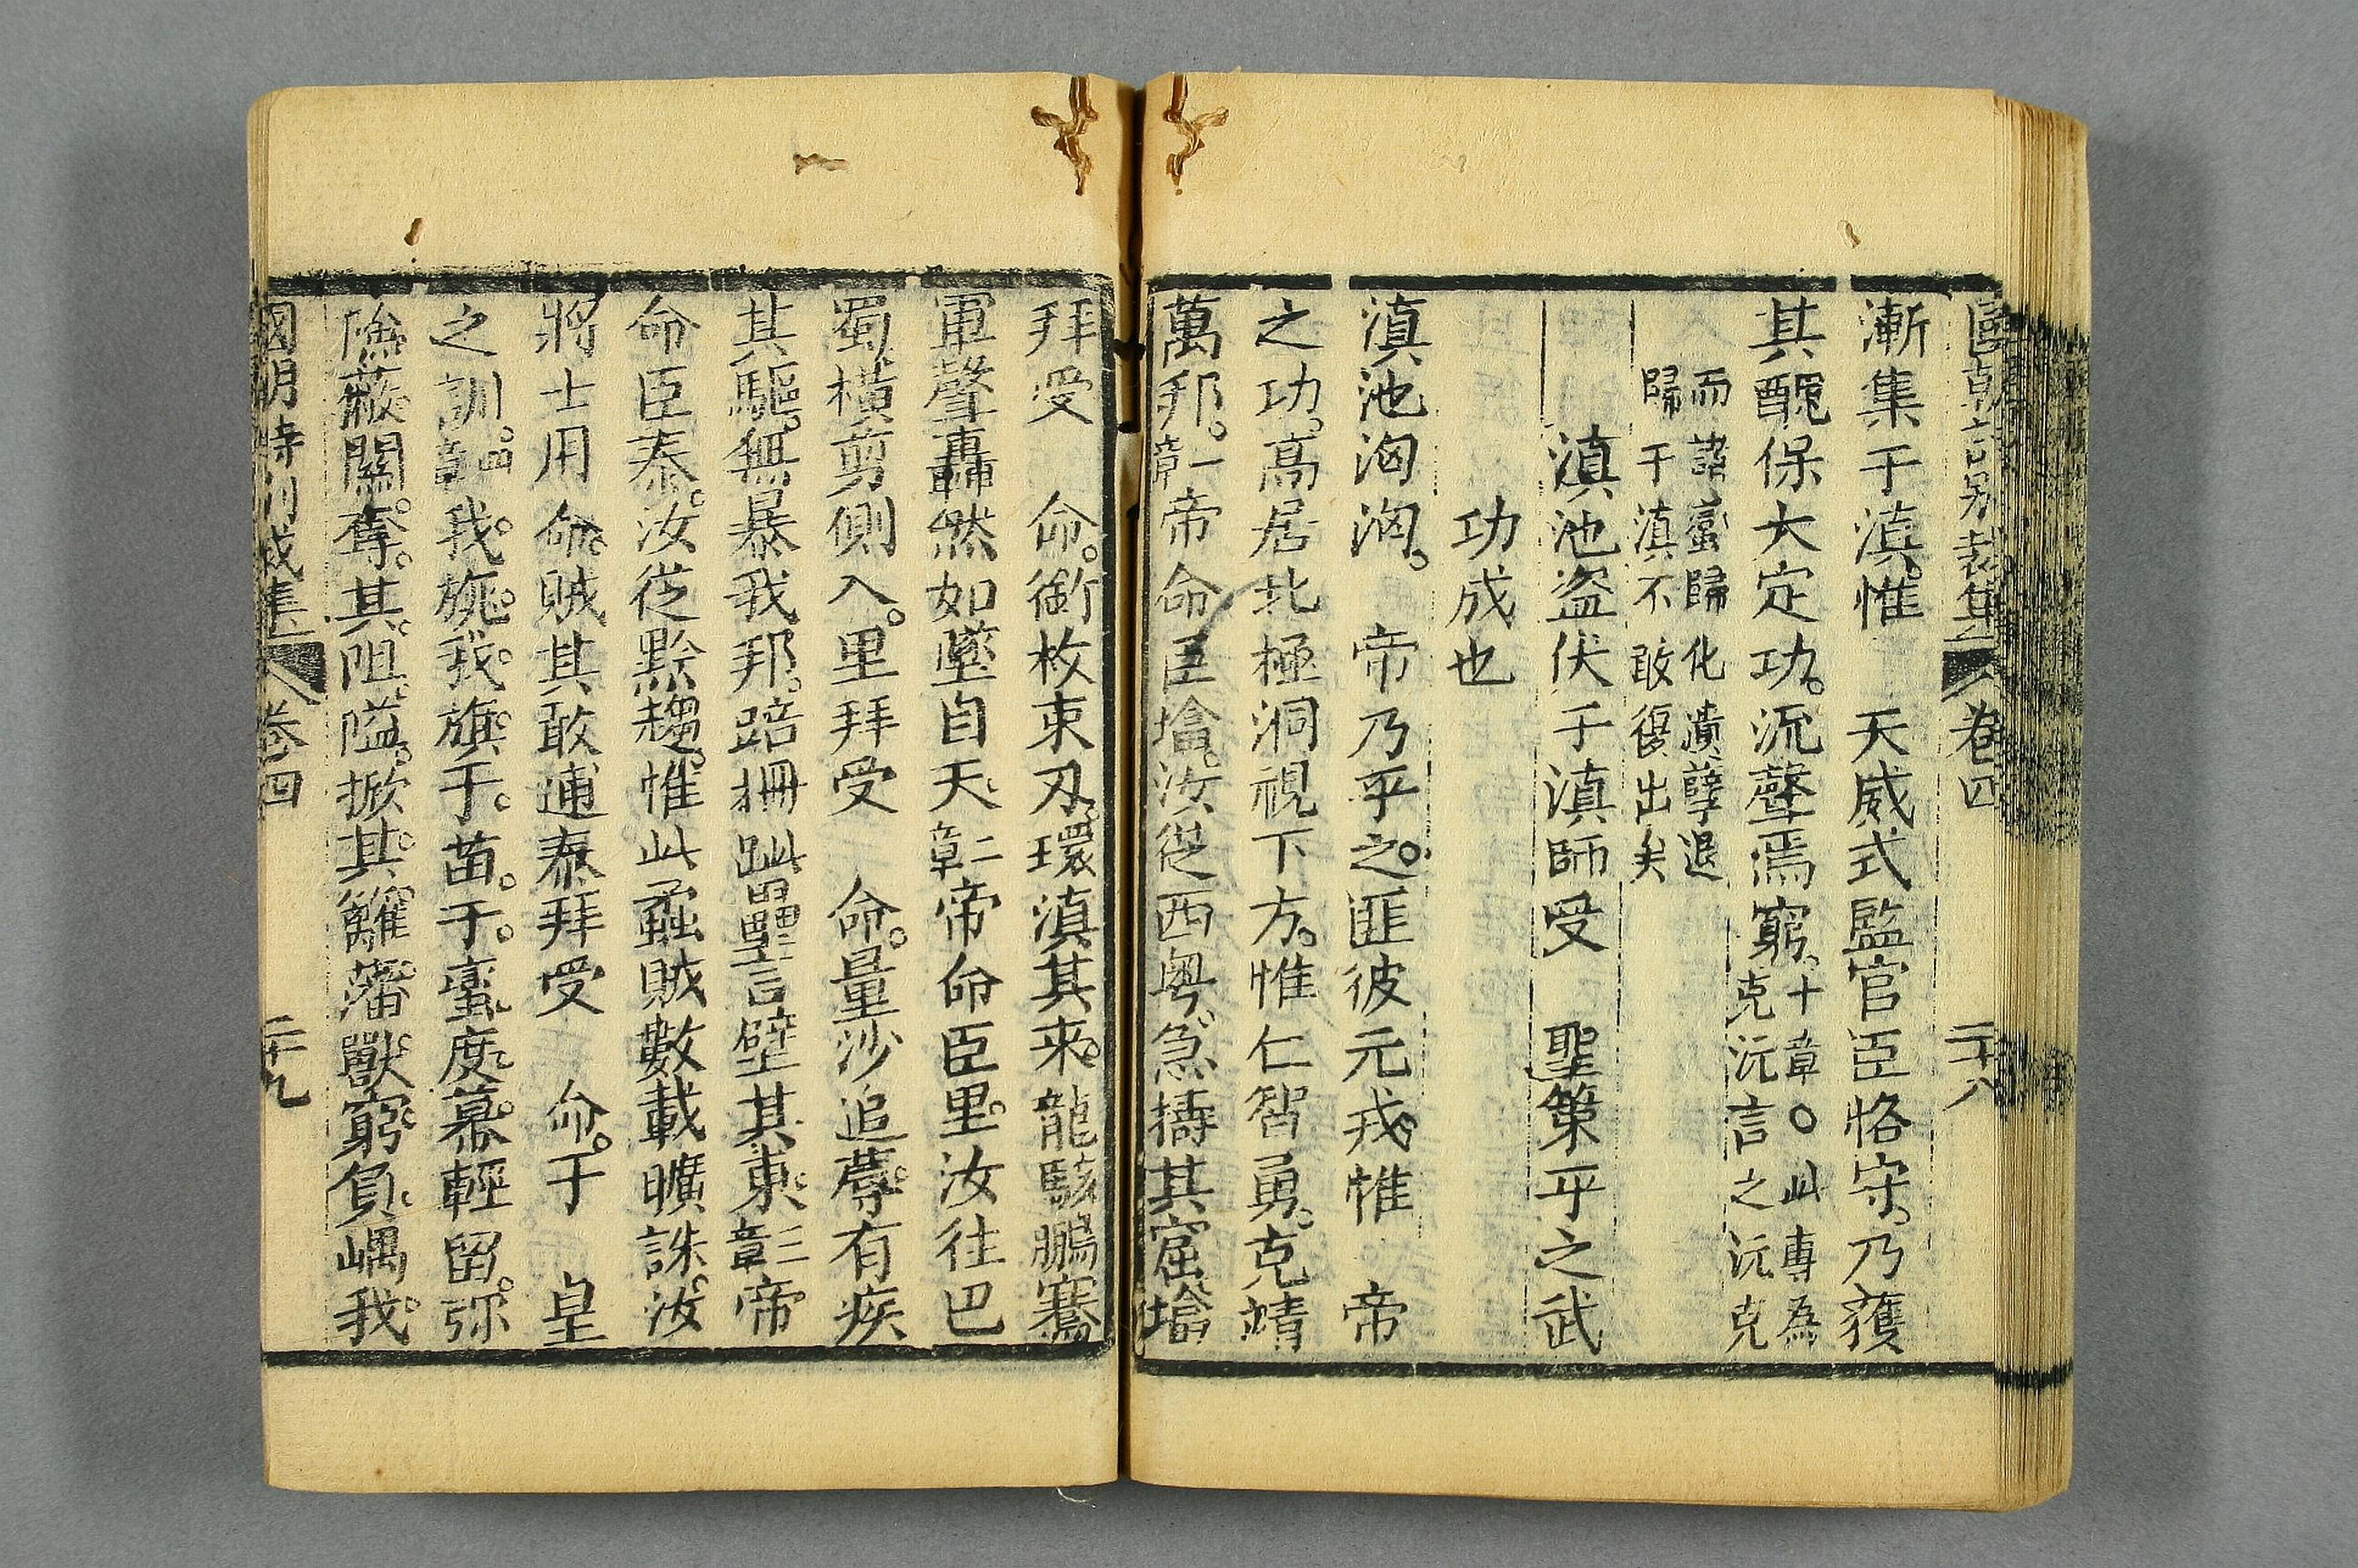 卷四 二十八
漸集于滇惟 天威式監官臣恪守乃獲
其醜保大定功流聲焉窮十章○此專為
克沅言之沅克
而諸蠻歸化潰孽退
歸于滇不敢復出矣
滇池盜伏于滇師受 聖策平之武
功成也
滇池洶洶 帝乃平之匪彼元戎惟 帝
之功高居北極洞視下方惟仁智勇克靖
萬邦一章帝命臣墖汝從西粤急擣其窟墖
拜受 命銜枚束刃環滇其来龍駭鵬騫
軍聲轟然如墜自天二章帝命臣里汝往巴
蜀橫剪側入里拜受 命量沙追蓐有疾
其驅無暴我邦踣柵跐壘言壁其東三章帝
命臣泰汝從黔趨惟此蟊賊數載曠誅汝
將士用命賊其敢逋泰拜受 命于 皇
之訓四章我旐我旗于苗于蠻度幕輕留弥
蔽關奪其阻隘掀其籬藩獸窮負嵎我
卷四 二十九